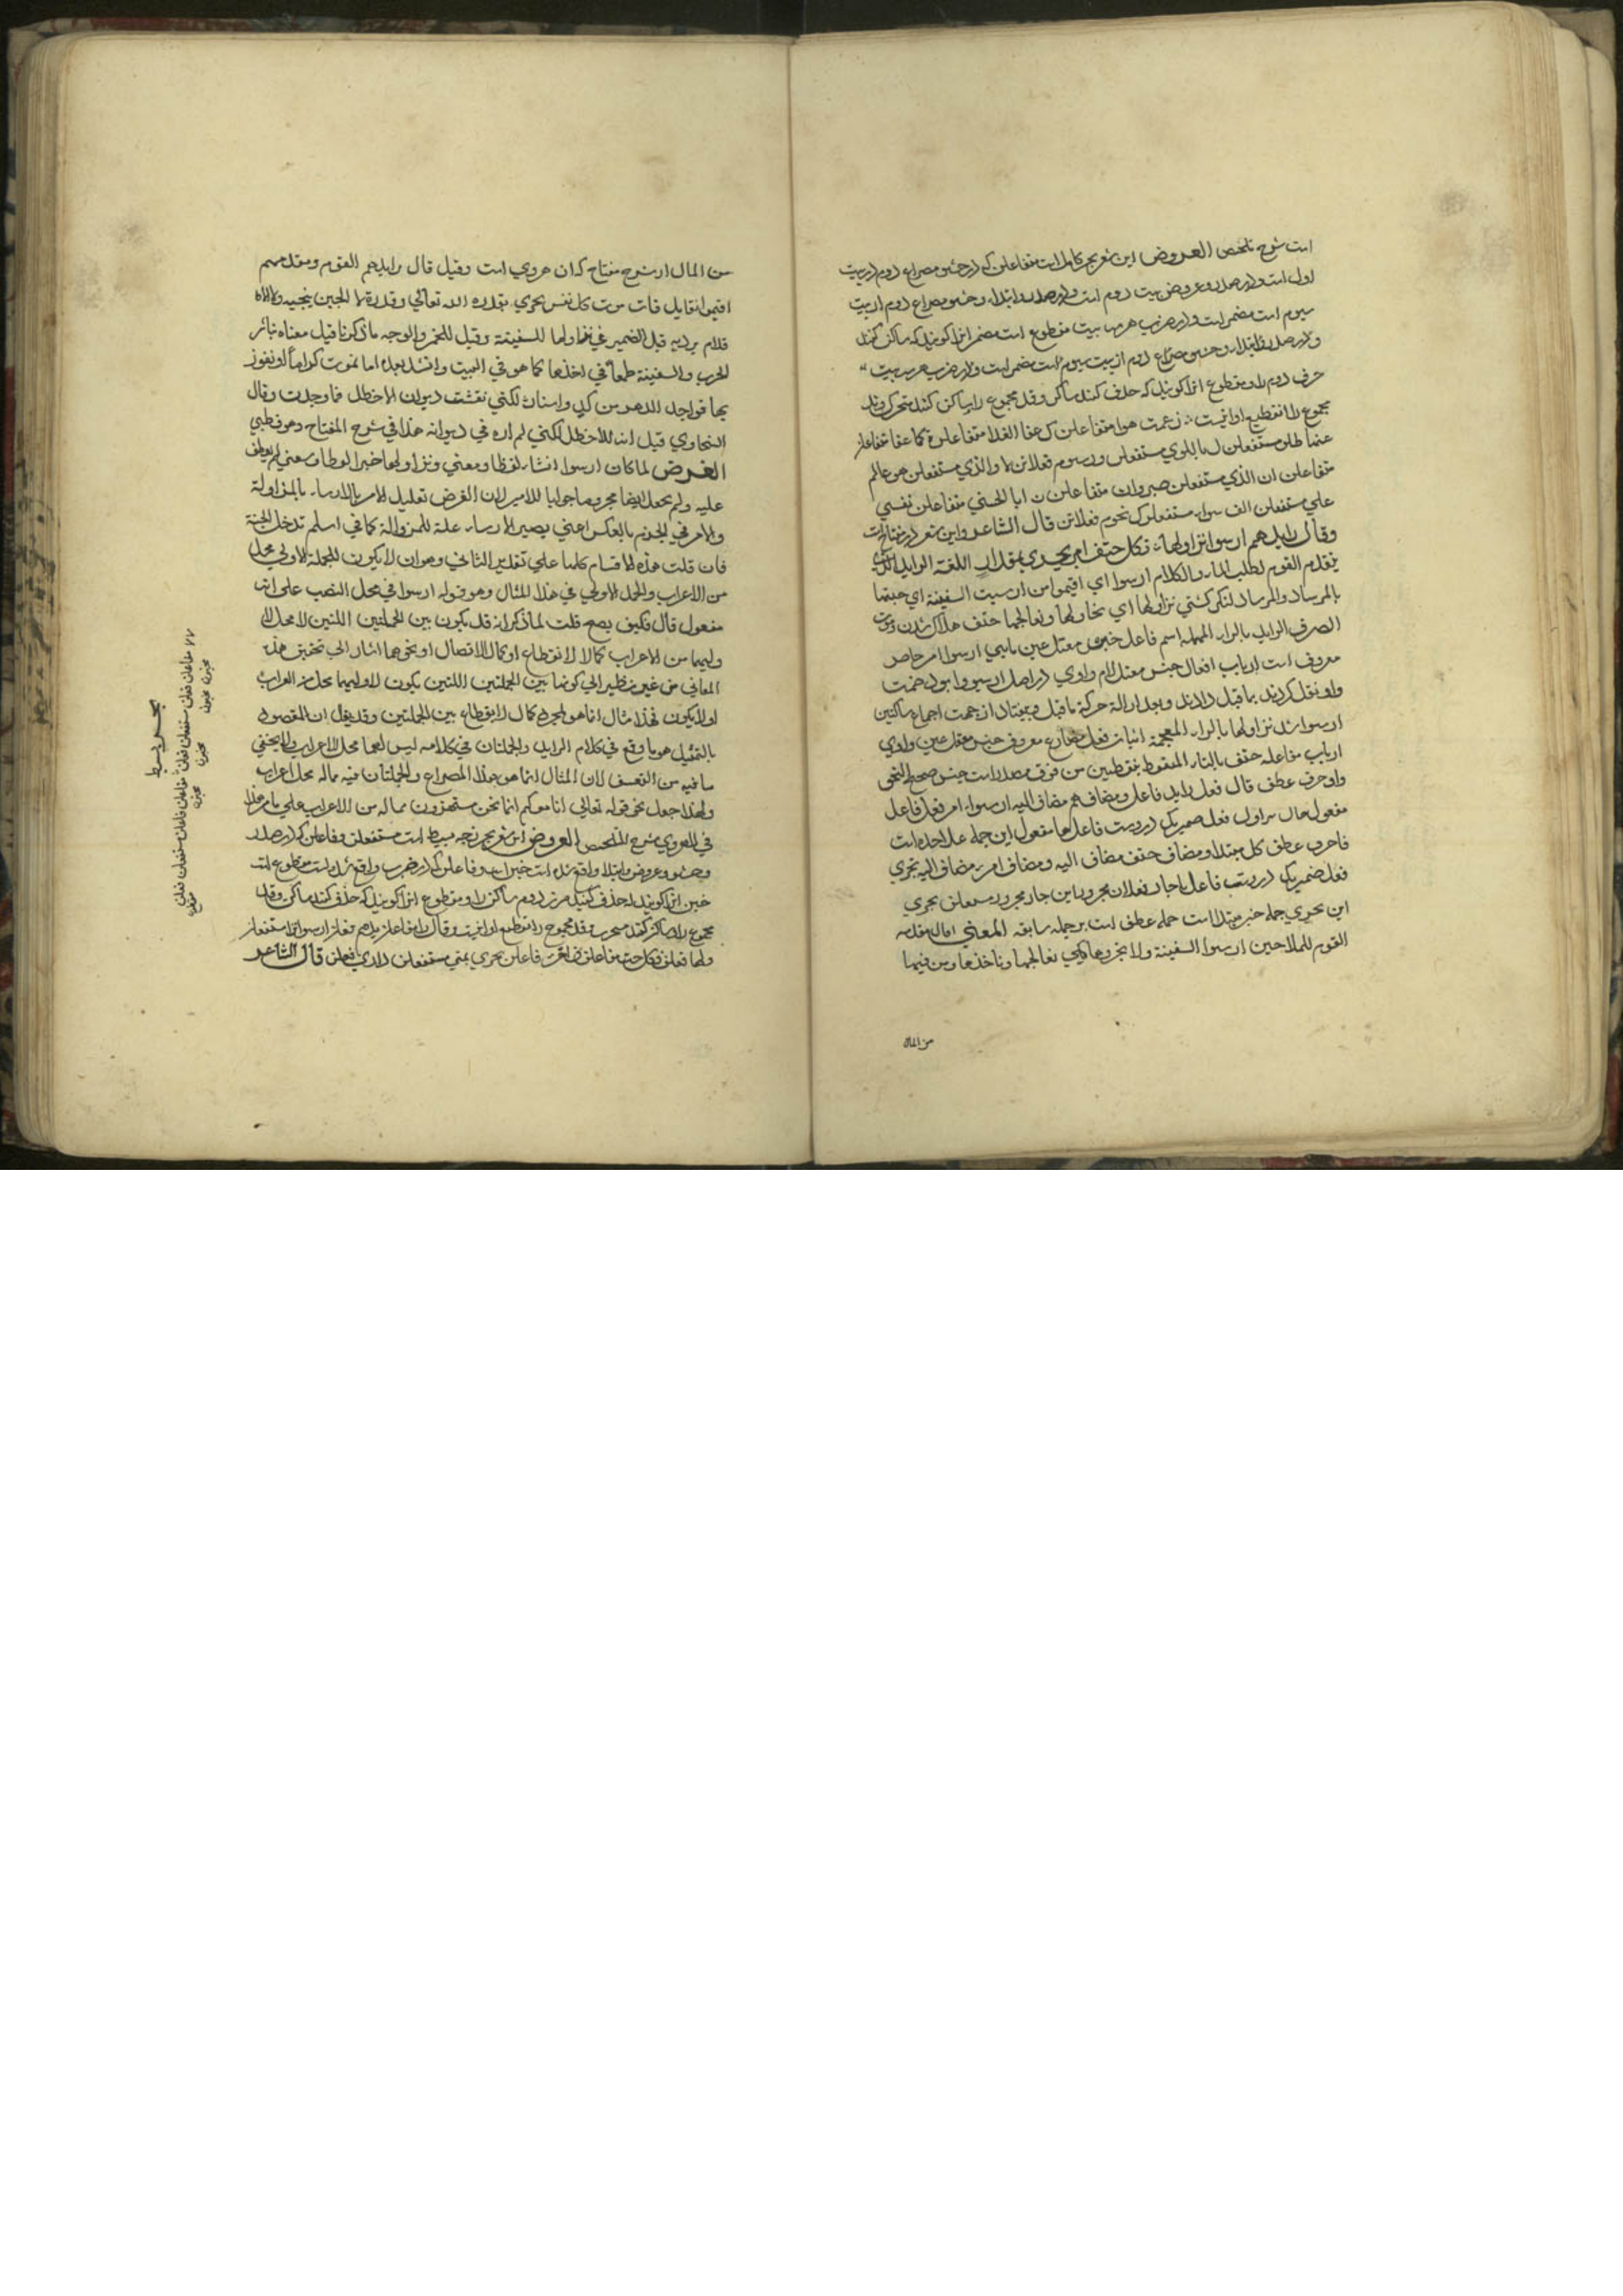 است شرح تلخص العروض این شعر بحر کامل است متفاعلن که در حشو مصراع دوم از بیت
اول است و در صدر و عروض بیت دوم است و در صدر و ابتدا و حشو مصراع دوم از بیت
سیوم است مضمر است و در ضرب هر سه بیت مقطوع است مضمر انرا کویند که ساکن کنند
حرف دوم را و مقطوع انرا کویند که حذف کنند ساکن وتد مجموع را و ساکن کنند متحرک وتد
مجموع را تقطیع او اینست زعمت هوا متفاعلن ک عفا الغدا متفاعلن ة کما عفا متفاعلن
عنها طلو مستفعلن ل باللوي مستفعلن ورسوم فعلاتن لا والذي مستفعلن هو عالم
متفاعلن ان الذي مستفعلن صبر وان متفاعلن ن ابا الحسی متفاعلن نفسي
علي مستفعلن الف سوا مستفعلن ک تحوم فعلاتن قال الشاعر و این شعر در مفتاح است
وقال رایدهم ارسوا نزاولها فکل حتف امرء يجري بمقدار اللغة الراید الذي
یتقدم القوم لطلب الماء والکلاء ارسوا اي اقیموا من ارسیت السفینة اي حبستها
بالمرساة والمرساة لنکر کشتي نزاولها اي نحاولها ونعالجها حتف هلاک شدن
الصرف الراید بالراء المهملة اسم فاعل معتل عین یایي ارسوا امر حاضر
معروف است از باب افعال جنس معتل لام واوي در اصل ارسووا بود ضمت
واو نقل کردند بما قبل دادند و بعد ازالة حرکة ما قبل و بیفتاد از جهت اجماع ساکنین
ارسوا شد نزاولها بالزاء المعجمة اثبات فعل مضارع معروف جنس معتل عین واوي
از باب مفاعله حتف بالتاء المنقوط بنقطتین من فوق مصدر است جنس صحیح النحو
واو حرف عطف قال فعل راید فاعل و مضاف هم مضاف الیه ارسوا امر فعل فاعل
مفعول فعل ضمیر یکي در وست فاعل ها مفعول این جمله علاحده است
فا حرف عطف کل مبتدا و مضاف حتف مضاف الیه و مضاف امرء مضاف الیه يجري
فعل ضمیر یکي در وست فاعل با جار مقدار مجرور با این جار مجرور متعلق يجري
این يجري جمله خبر مبتدا است جمله عطف است بر جمله سابقه المعني اقال مقدمه
القوم للملاحین ارسوا السفینة ولا تجروها کي نعالجها وناخذها ومن فیها
من المال
من المال از شرح مفتاح که ان هروي است وقیل قال رایدهم القوم ومقدمهم
اقیموا نقاتل فان موت کل نفس يجري بقدرة الله تعالي وقدره لا الجبن ینجیه ولا الاقدام
یردیه قیل الضمیر في نزاولها للسفینة وقیل للخمر والوجه ما ذکرنا قیل معناه
الحرب والسفینة طمعا في اخذها کما هو في البیت وانشد بعده اما نموت کراما او نفوز
بها فواحد الدهر من کد واسفار لکني تفتشت دیوان الاخطل فما وجدت وقال
السخاوي قیل انه للاخطل لکني لم اره في دیوانه هذا في شرح المفتاح وهو قطبي
الغرض لما کان ارسوا انشاء لفظا ومعني ونزاولها خبر الفظا ومعني لم یعطف
علیه ولم یجعل ایضا مجزوما جوابا للامر لان الغرض تعلیل الامر بالارساء بالمزاولة
والامر في الجزم بالعکس اعني یصیر الارساء علة للمزوالة کما في اسلم تدخل الجنة
فان قلت هذه الاقسام کلها علي تقدیر الثاني وهو ان لا یکون للجملة الاولي محل
من الاعراب والجملة الاولي في هذا المثال وهو قوله ارسوا في محل النصب علي انه
مفعول قال فکیف یصح قلت لما ذکر انه قد یکون بین الجملتین اللتین لا محل
لهما من الاعراب کمال الانقطاع او کمال الاتصال او نحوهما اشار الی تحقیق هذه
المعاني من غیر نظیر الي کونها بین الجملتین اللتین یکون لاولیهما محل من الاعراب
او لا یکون فهذا مثال انما هو لمجرد کمال الانقطاع بین الجملتین وقد یقال ان المقصود
بالتمثیل هو ما وقع في کلام الراید والجملتان في کلامه لیس لهما محل الاعراب ولا یخفي
ما فیه من التعسف لان المثال انما هو هذا المصراع والجملتان فیه ماله محل اعراب
ولهذا جعل نحو قوله تعالي انا معکم انما نحن مستهزؤن مما له من الاعراب علي ما مر هذا
في الهروي شرح الملخص العروض این شعر بحر بسیط است مستفعلن و فاعلن که در صدر
و حشو و عروض و ابتدا واقع شده است خبن است و فاعلن که در ضرب واقع شده است مقطوع است
خبن انرا کویند که حذف کنند حرف دوم ساکن را و مقطوع انرا کویند که حذف کنند ساکن وتد
مجموع را ساکن کنند متحرک وتد مجموع را تقطیع او اینست وقال را مفاعلن یدهم فعلن ارسوا نزا مستفعلن
ولها فعلن فکل حت مفاعلن ف امرء فاعلن يجري بمق مستفعلن داري فعلن قال الشاعر
بحر بسیط
مفاعلن فعلن مستفعلن فعلن مفاعلن فاعلن مستفعلن فعلن
مخبون مخبون مخبون مخبون مقطوع